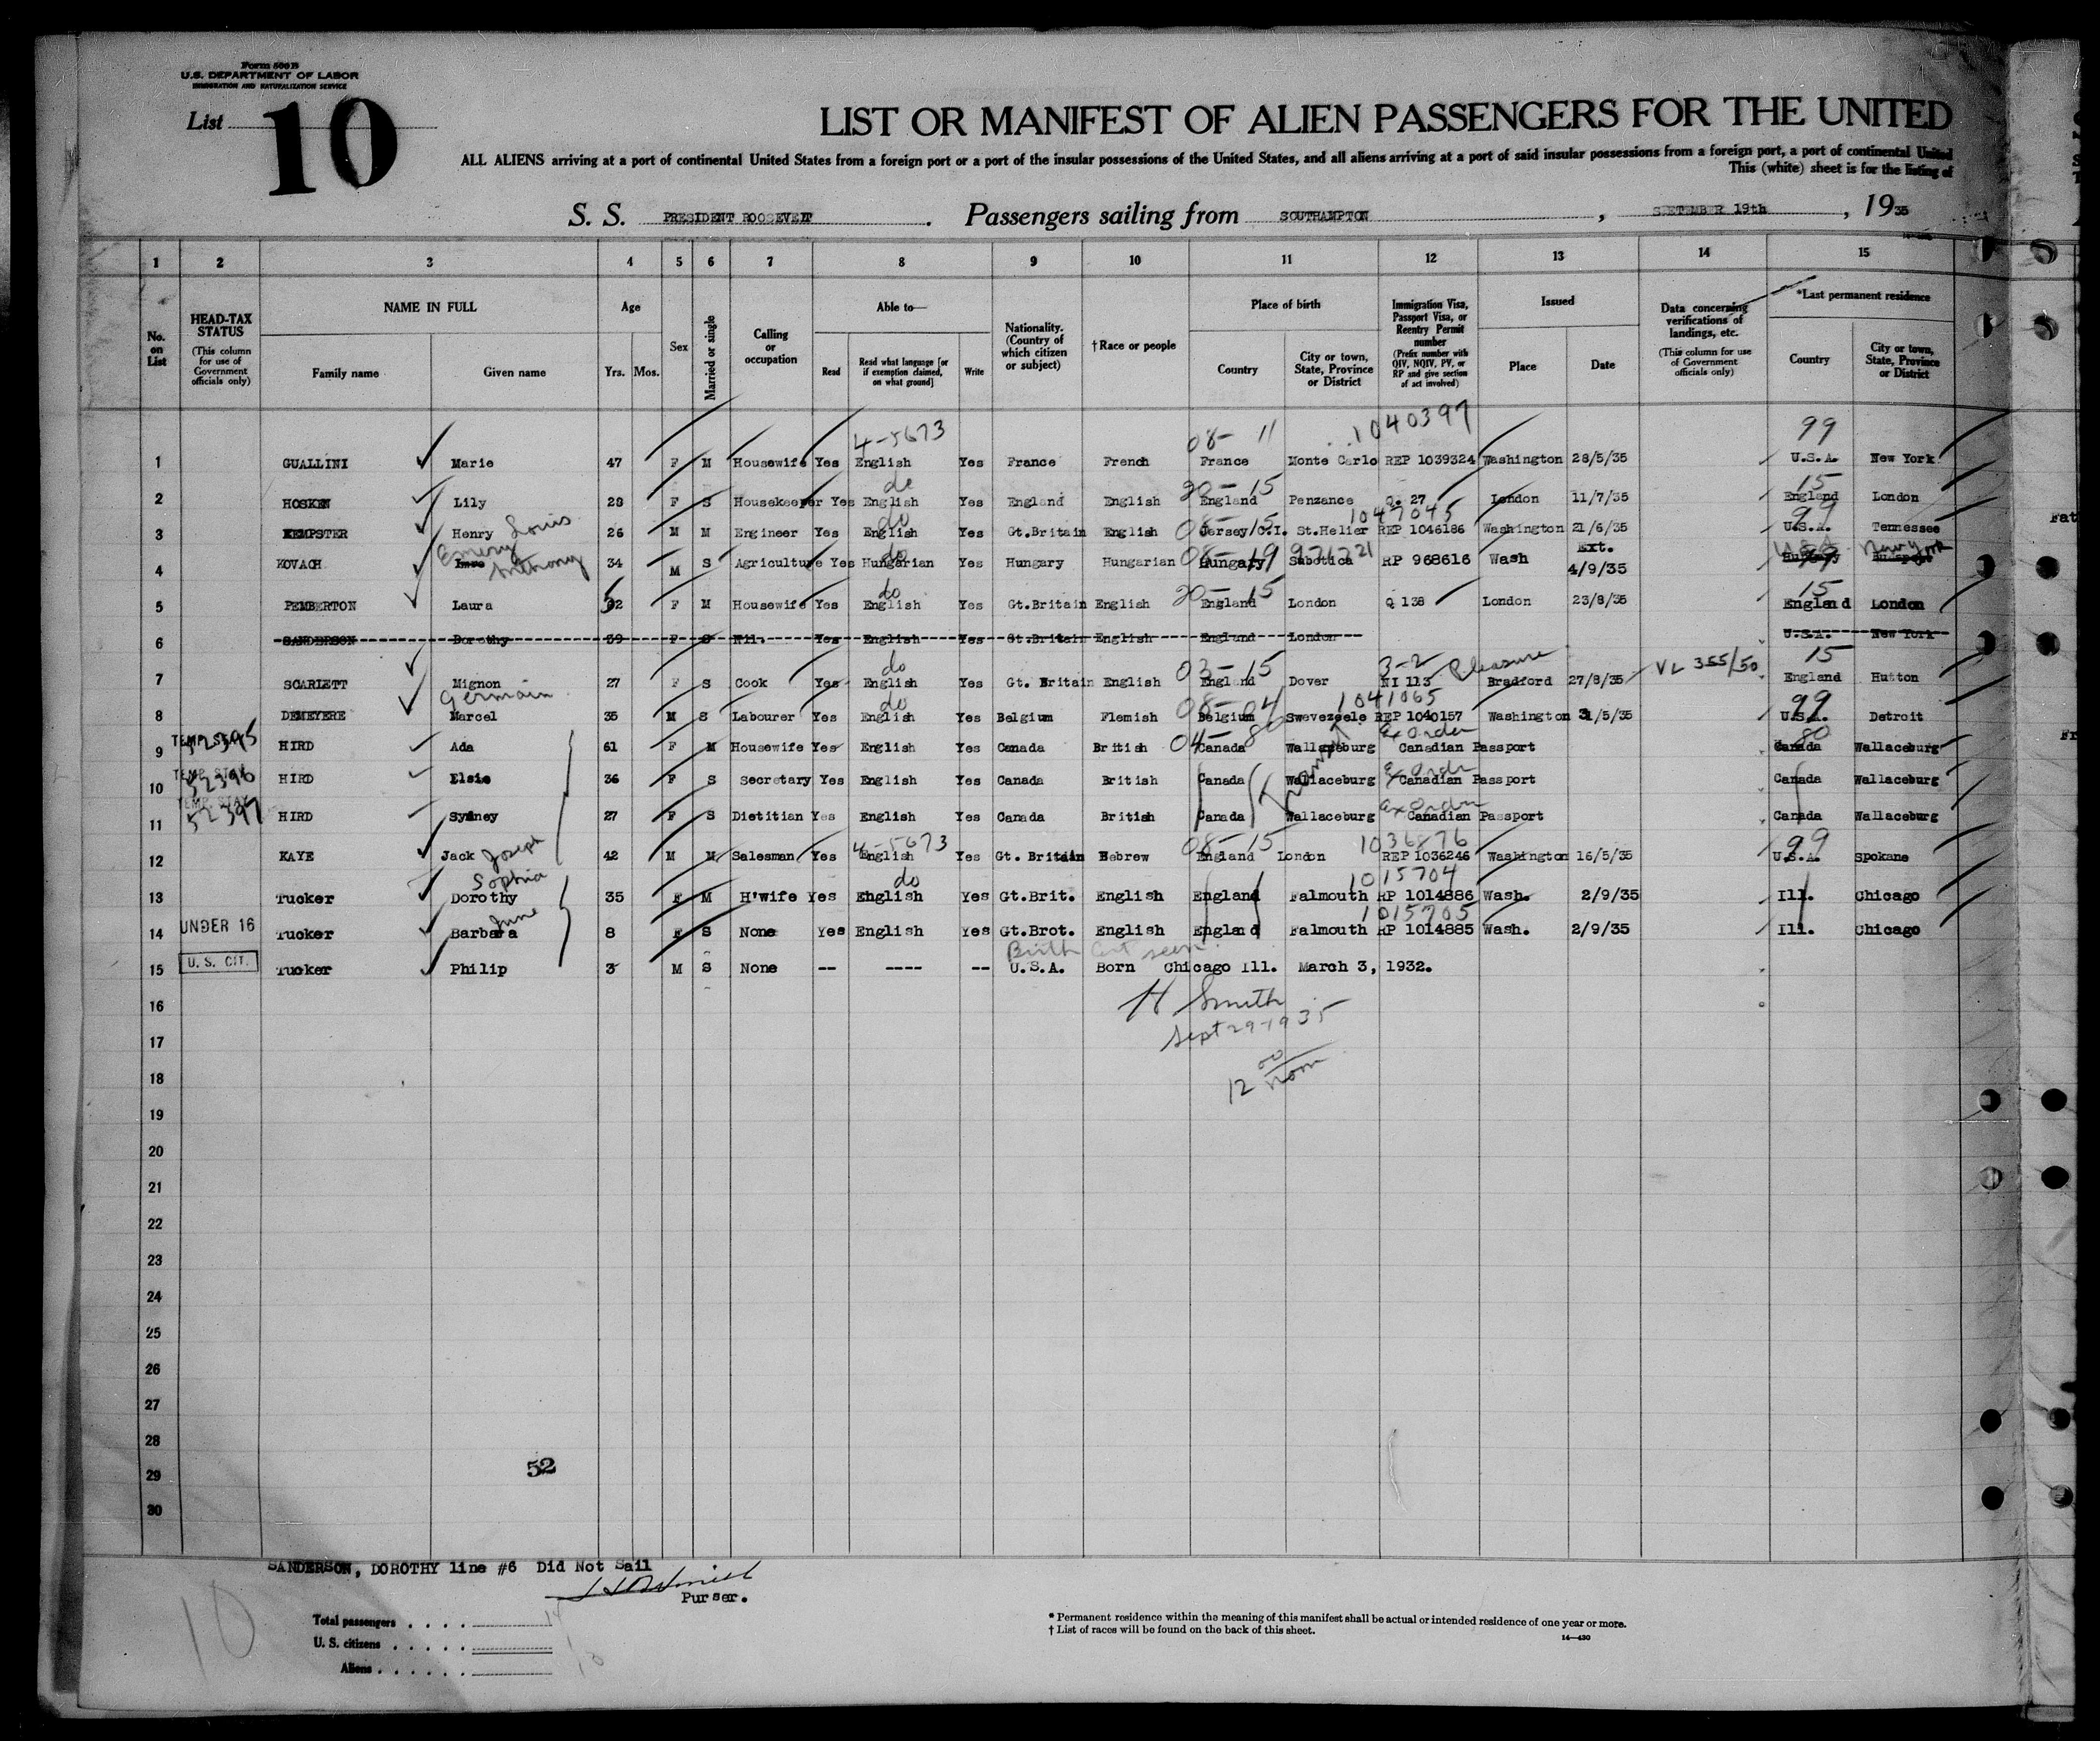 Form 500 B
U.S. DEPARTMENT OF LABOR
IMMIGRATION AND NATURALIZATION SERVICE
List 10
LIST OR MANIFEST OF ALIEN PASSENGERS FOR THE UNITED
ALL ALIENS arriving at a port of continental United States from a foreign port or a port of the insular possessions of the United States, and all aliens arriving at a port of said insular possessions from a foreign port, a port of continental United
This (white) sheet is for the listing of
S. S. PRESIDENT ROOSEVELT . Passengers sailing from SOUTHAMPTON , SEPTEMBER 19th , 1935
1 2 3 4 5 6 7 8 9 10 11 12 13 14 15
No. on List
HEAD-TAX STATUS (This column for use of Government officials only)
NAME IN FULL Family name Given name
Age Yrs. Mos.
Sex
Married or single
Calling or occupation
Able to— Read Read what language [or if exemption claimed, on what ground] Write
Nationality. (Country of which citizen or subject)
†Race or people
Place of birth Country City or town, State, Province or District
Immigration Visa, Passport Visa, or Reentry Permit number (Prefix number with QIV, NQIV, PV, or RP and give section of act involved)
Issued Place Date
Data concerning verifications of landings, etc. (This column for use of Government officials only)
*Last permanent residence Country City or town, State, Province or District
4-5673 08- 11 1040397 99
1 GUALLINI Marie 47 F M Housewife Yes English Yes France French France Monte Carlo REP 1039324 Washington 28/5/35 U.S.A. New York
do 20- 15 15
2 HOSKEN Lily 28 F S Housekeeper Yes English Yes England English England Penzance Q. 27 London 11/7/35 England London
Louis do 08- 15 1047045 99
3 KEMPSTER Henry 26 M M Engineer Yes English Yes Gt.Britain English Jersey/C.I. St.Helier REP 1046186 Washington 21/6/35 U.S.A. Tennessee
Emery Anthony do 08- 19 976721 Ext. U.S.A. New York
4 KOVACH Imre 34 M S Agriculture Yes Hungarian Yes Hungary Hungarian Hungary Subotica RP 968616 Wash 4/9/35 Hungary Budapest 99
do 20- 15 15
5 PEMBERTON Laura 62 F M Housewife Yes English Yes Gt.Britain English England London Q 138 London 23/8/35 England London
6 SANDERSON Dorothy 39 F S Nil. Yes English Yes Gt.Britain English England London U.S.A. New York
do 03- 15 3-2 Pleasure VL 355/50 15
7 SCARLETT Mignon 27 F S Cook Yes English Yes Gt. Britain English England Dover NI 113 Bradford 27/8/35 England Hutton
Germain do 08- 04 1041065 99
8 DEMEYERE Marcel 35 M S Labourer Yes English Yes Belgium Flemish Belgium Swevezeele REP 1040157 Washington 31/5/35 U.S.A. Detroit
TEMP. STAY 52395 04- 80 Ex Order 80
9 HIRD Ada 61 F M Housewife Yes English Yes Canada British Canada Wallaceburg Canadian Passport Canada Wallaceburg
TEMP. STAY 52396 Transit Ex Order
10 HIRD Elsie 36 F S Secretary Yes English Yes Canada British Canada Wallaceburg Canadian Passport Canada Wallaceburg
TEMP. STAY 52397 Ex Order
11 HIRD Sydney 27 F S Dietitian Yes English Yes Canada British Canada Wallaceburg Canadian Passport Canada Wallaceburg
Joseph 4-5673 08- 15 1036876 99
12 KAYE Jack 42 M M Salesman Yes English Yes Gt. Britain Hebrew England London REP 1036246 Washington 16/5/35 U.S.A. Spokane
Sophia do 1015704
13 Tucker Dorothy 35 F M H'wife Yes English Yes Gt.Brit. English England Falmouth RP 1014886 Wash. 2/9/35 Ill. Chicago
June 1015705
14 UNDER 16 Tucker Barbara 8 F S None Yes English Yes Gt.Brot. English England Falmouth RP 1014885 Wash. 2/9/35 Ill. Chicago
Birth Cert seen
15 U. S. CIT. Tucker Philip 3 M S None -- ---- -- U.S.A. Born Chicago Ill. March 3, 1932.
16
H Smith
17
Sept 29-1935
18
12 00 noon
19
20
21
22
23
24
25
26
27
28
29
52
30
SANDERSON, DOROTHY line #6 Did Not Sail
Purser.
10
Total passengers . . . . 14
U. S. citizens . . . . .
Aliens . . . . . . 13
* Permanent residence within the meaning of this manifest shall be actual or intended residence of one year or more.
† List of races will be found on the back of this sheet.
14—430